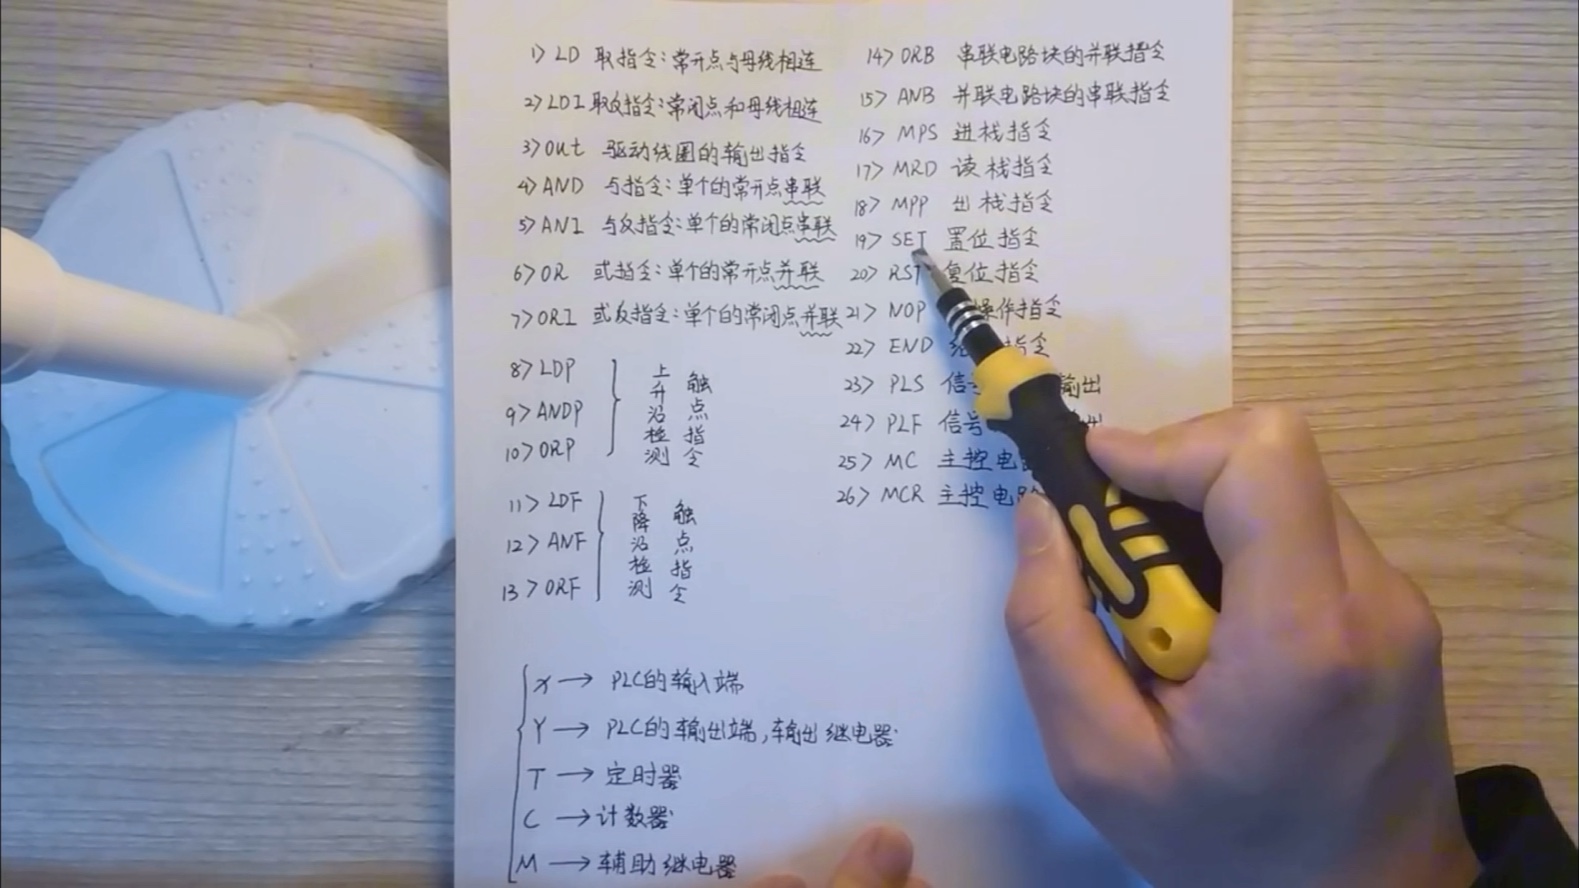 1> LD 取指令:常开点与母线相连
2> LDI 取反指令:常闭点和母线相连
3> Out 驱动线圈的输出指令
4> AND 与指令:单个的常开点串联
5> ANI 与反指令:单个的常闭点串联
6> OR 或指令:单个的常开点并联
7> ORI 或反指令:单个的常闭点并联
8> LDP
9> ANDP
10> ORP
上升沿检测
触点指令
11> LDF
12> ANF
13> ORF
下降沿检测
触点指令
14> ORB 串联电路块的并联指令
15> ANB 并联电路块的串联指令
16> MPS 进栈指令
17> MRD 读栈指令
18> MPP 出栈指令
19> SET 置位指令
20> RST 复位指令
21> NOP 操作指令
22> END 指令
23> PLS 信 输出
24> PLF 信号 出
25> MC 主控电
26> MCR 主控电路
X → PLC的输入端
Y → PLC的输出端,输出继电器
T → 定时器
C → 计数器
M → 辅助继电器